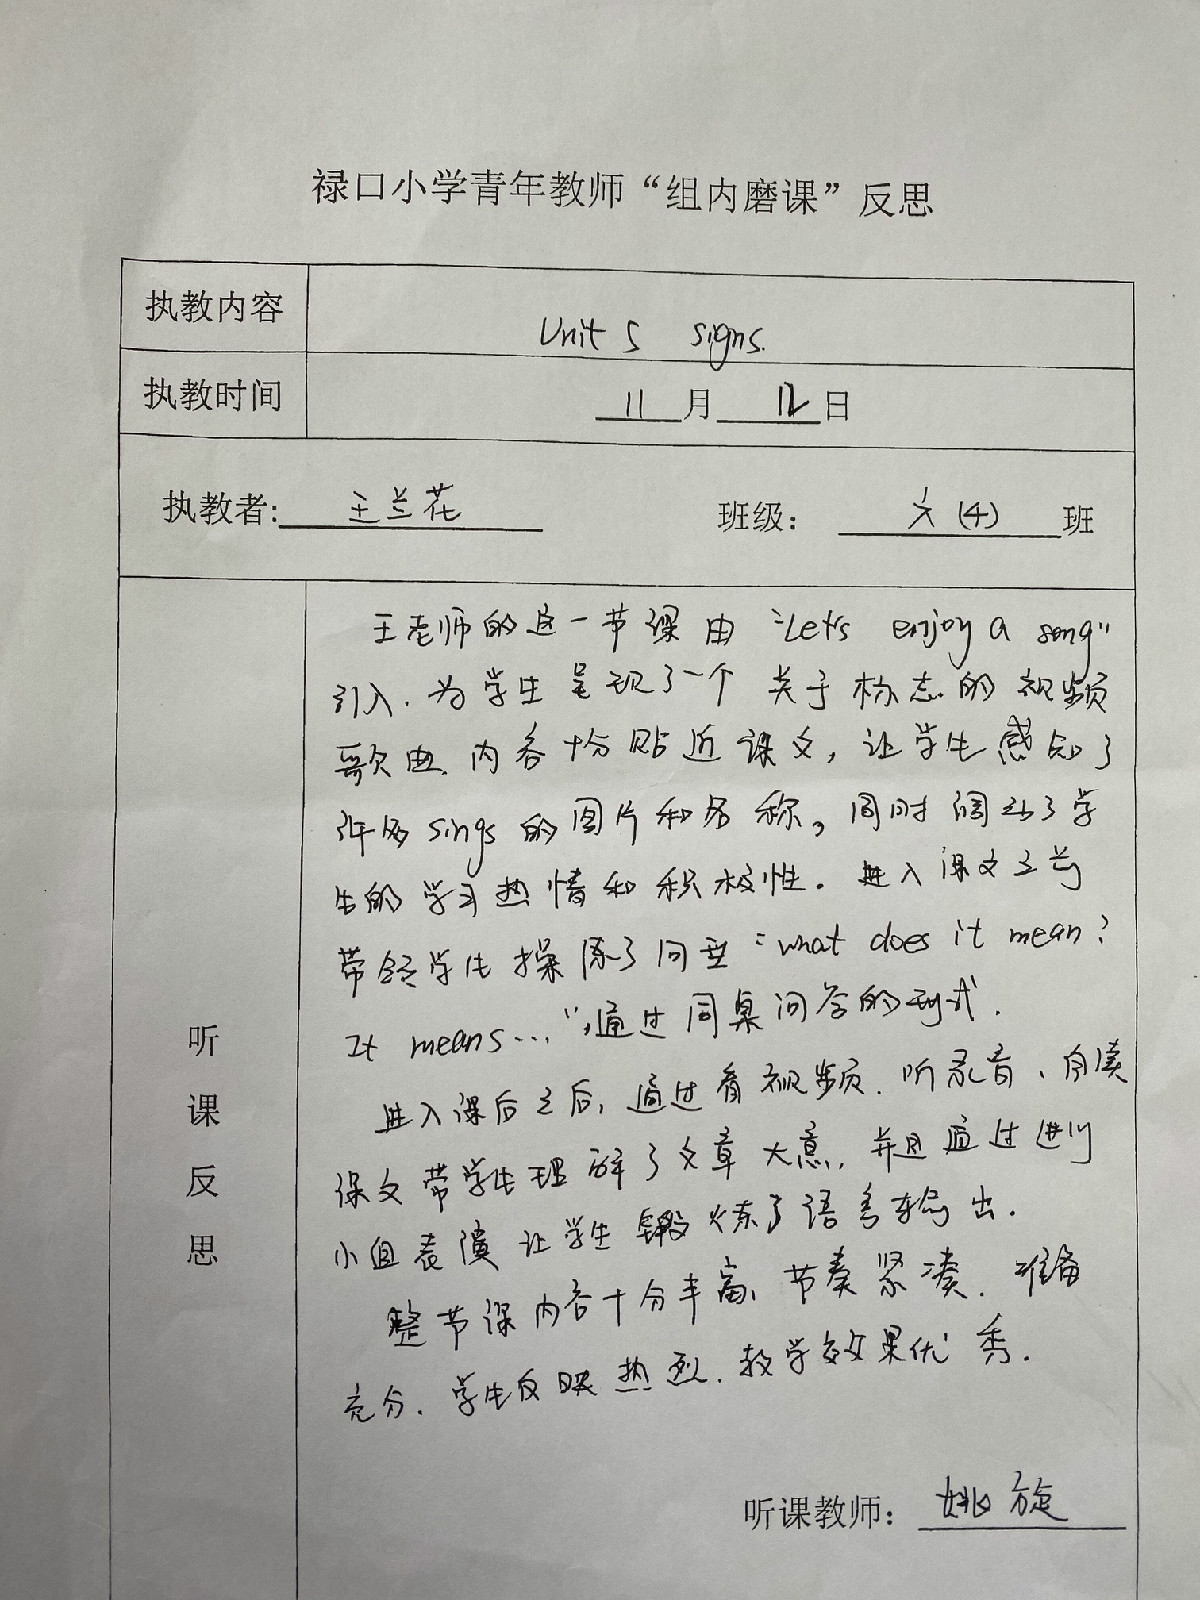 禄口小学青年教师“组内磨课”反思
执教内容 Unit 5 signs.
执教时间 11月12日
执教者: 王兰花 班级： 六(4) 班
王老师的这一节课由“Let's enjoy a song”
引入.为学生呈现了一个关于标志的视频
歌曲、内容十分贴近课文，让学生感知了
许多sings的图片和名称。同时调动了学
生的学习热情和积极性。进入课文之前
带领学生操练了句型“what does it mean?
It means…”，通过同桌问答的形式.
进入课后之后，通过看视频、听录音、自读
课文带学生理解了文章大意，并且通过进行
小组表演让学生锻炼了语言输出.
整节课内容十分丰富、节奏紧凑.准备
充分.学生反映热烈.教学效果优秀.
听课反思
听课教师： 姚旋